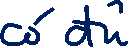 có đủ